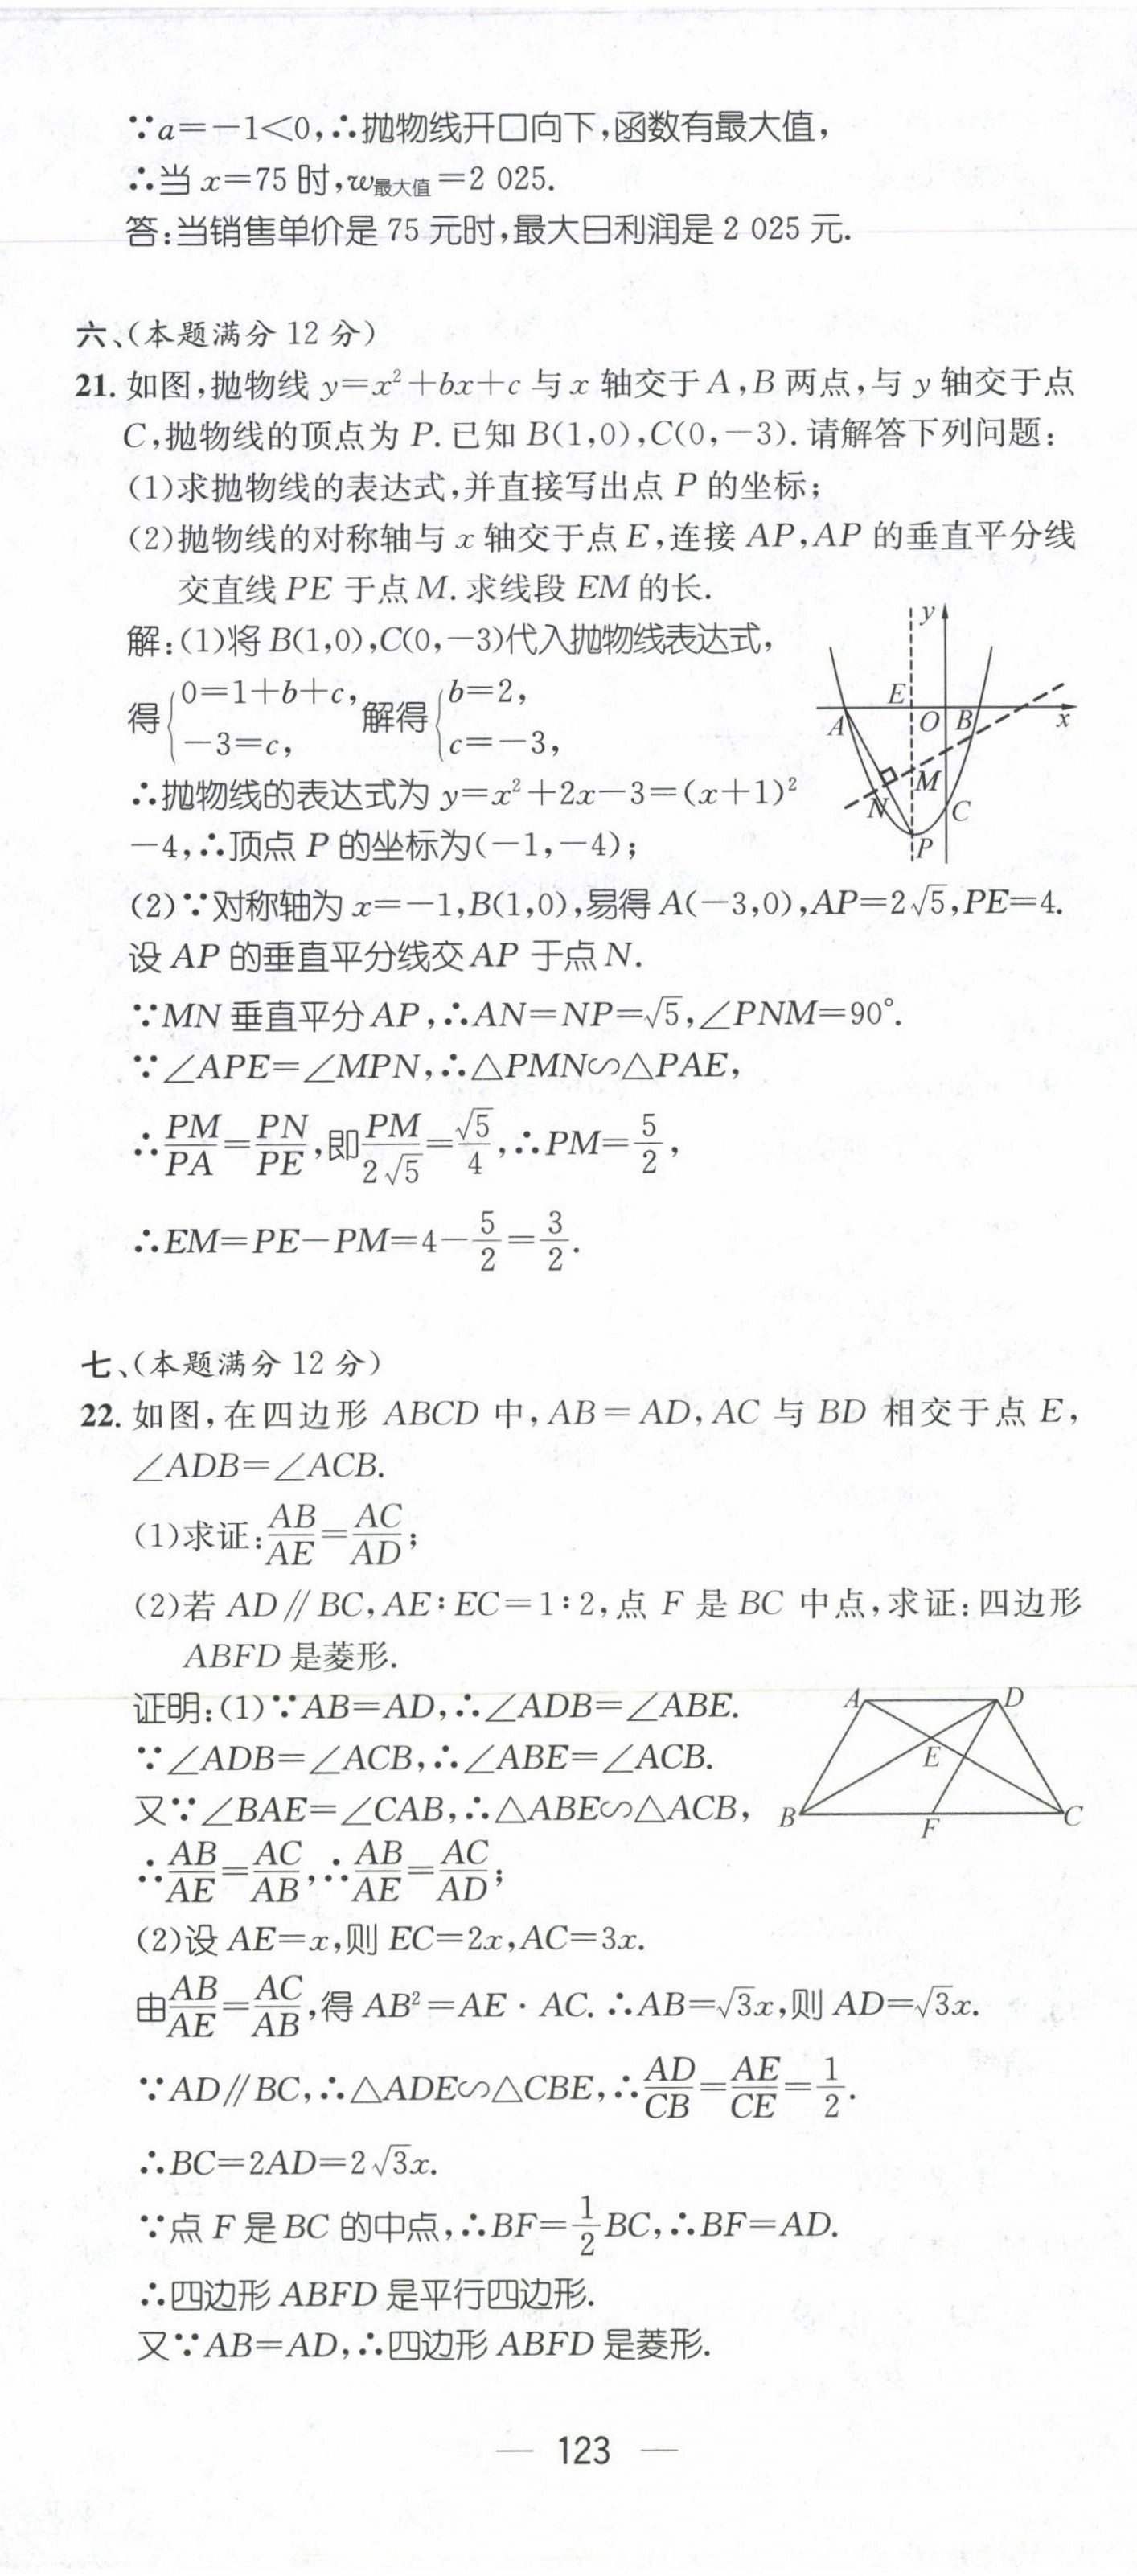 ∵a=-1<0,∴抛物线开口向下,函数有最大值,
∴当 x=75 时,w最大值=2 025.
答:当销售单价是 75 元时,最大日利润是 2 025 元.
六、(本题满分 12 分)
21. 如图,抛物线 y=x²+bx+c 与 x 轴交于 A,B 两点,与 y 轴交于点
C,抛物线的顶点为 P.已知 B(1,0),C(0,-3).请解答下列问题:
(1)求抛物线的表达式,并直接写出点 P 的坐标;
(2)抛物线的对称轴与 x 轴交于点 E,连接 AP,AP 的垂直平分线
交直线 PE 于点 M.求线段 EM 的长.
解:(1)将 B(1,0),C(0,-3)代入抛物线表达式,
得{0=1+b+c, -3=c, 解得{b=2, c=-3,
∴抛物线的表达式为 y=x²+2x-3=(x+1)²
-4,∴顶点 P 的坐标为(-1,-4);
y
E
A
O
B
x
M
N
C
P
(2)∵对称轴为 x=-1,B(1,0),易得 A(-3,0),AP=2√5,PE=4.
设 AP 的垂直平分线交 AP 于点 N.
∵MN 垂直平分 AP,∴AN=NP=√5,∠PNM=90°.
∵∠APE=∠MPN,∴△PMN∽△PAE,
∴PM/PA=PN/PE,即PM/2√5=√5/4,∴PM=5/2,
∴EM=PE-PM=4-5/2=3/2.
七、(本题满分 12 分)
22. 如图,在四边形 ABCD 中,AB=AD,AC 与 BD 相交于点 E,
∠ADB=∠ACB.
(1)求证:AB/AE=AC/AD;
(2)若 AD∥BC,AE:EC=1:2,点 F 是 BC 中点,求证:四边形
ABFD 是菱形.
证明:(1)∵AB=AD,∴∠ADB=∠ABE.
∵∠ADB=∠ACB,∴∠ABE=∠ACB.
又∵∠BAE=∠CAB,∴△ABE∽△ACB,
∴AB/AE=AC/AB,∴AB/AE=AC/AD;
A
D
E
B
F
C
(2)设 AE=x,则 EC=2x,AC=3x.
由AB/AE=AC/AB,得 AB²=AE·AC.∴AB=√3x,则 AD=√3x.
∵AD∥BC,∴△ADE∽△CBE,∴AD/CB=AE/CE=1/2.
∴BC=2AD=2√3x.
∵点 F 是 BC 的中点,∴BF=1/2BC,∴BF=AD.
∴四边形 ABFD 是平行四边形.
又∵AB=AD,∴四边形 ABFD 是菱形.
— 123 —